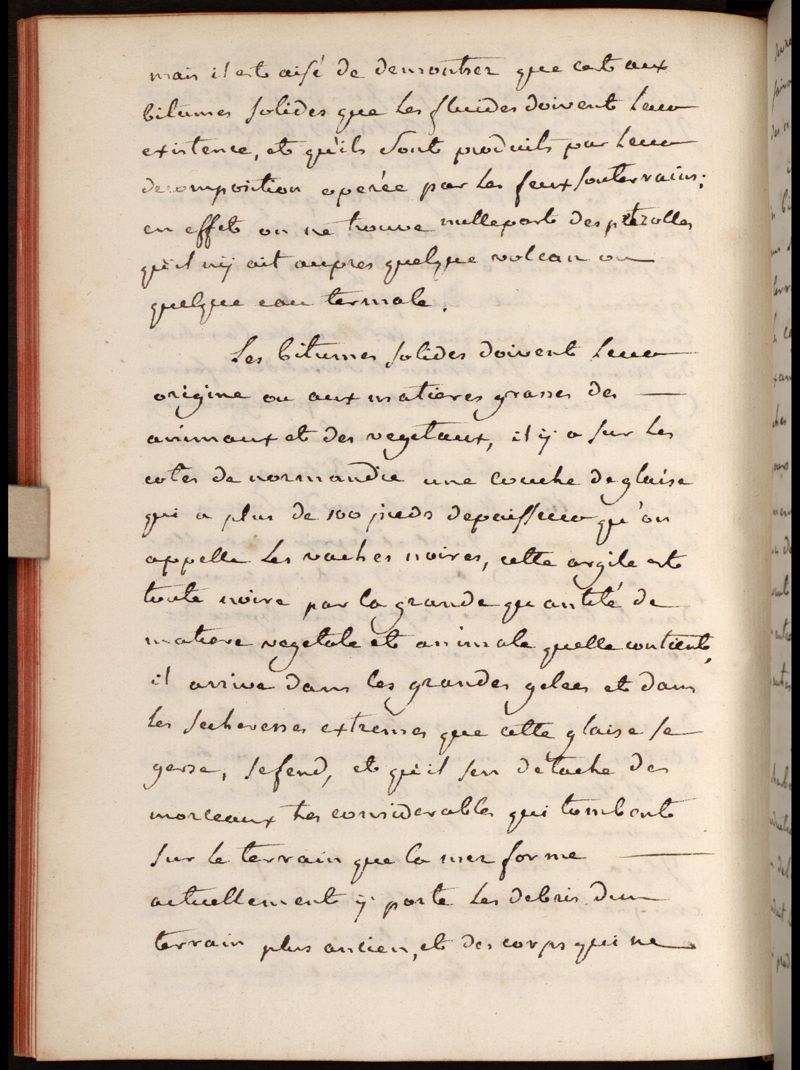 mais il est aisé de demontrer que cest aux
bitumes solides que les fluides doivent leur
existence, et qu'ils sont produits par leur
decomposition operée par les feux souterrains;
en effet on ne trouve nullepart des petrolles
qu'il ny ait aupres quelque volcan ou
quelque eau termale.
Les bitumes solides doivent leur
origine ou aux matieres grasses des
animaux et des vegetaux, il ÿ a sur les
cotes de normandie une couche de glaise
qui a plus de 100 pieds depaisseur qu'on
appelle les vaches noires, cette argile est
toute noire par la grande quantité de
matiere vegetale et animale quelle contient,
il arrive dans les grandes gelees et dans
les secheresses extremes que cette glaise se
gerse, se fend, et qu'il sen detache des
morceaux tres considerables qui tombent
sur le terrain que la mer forme
actuellement ÿ porte les debris dun
terrain plus ancien, et des corps qui ne